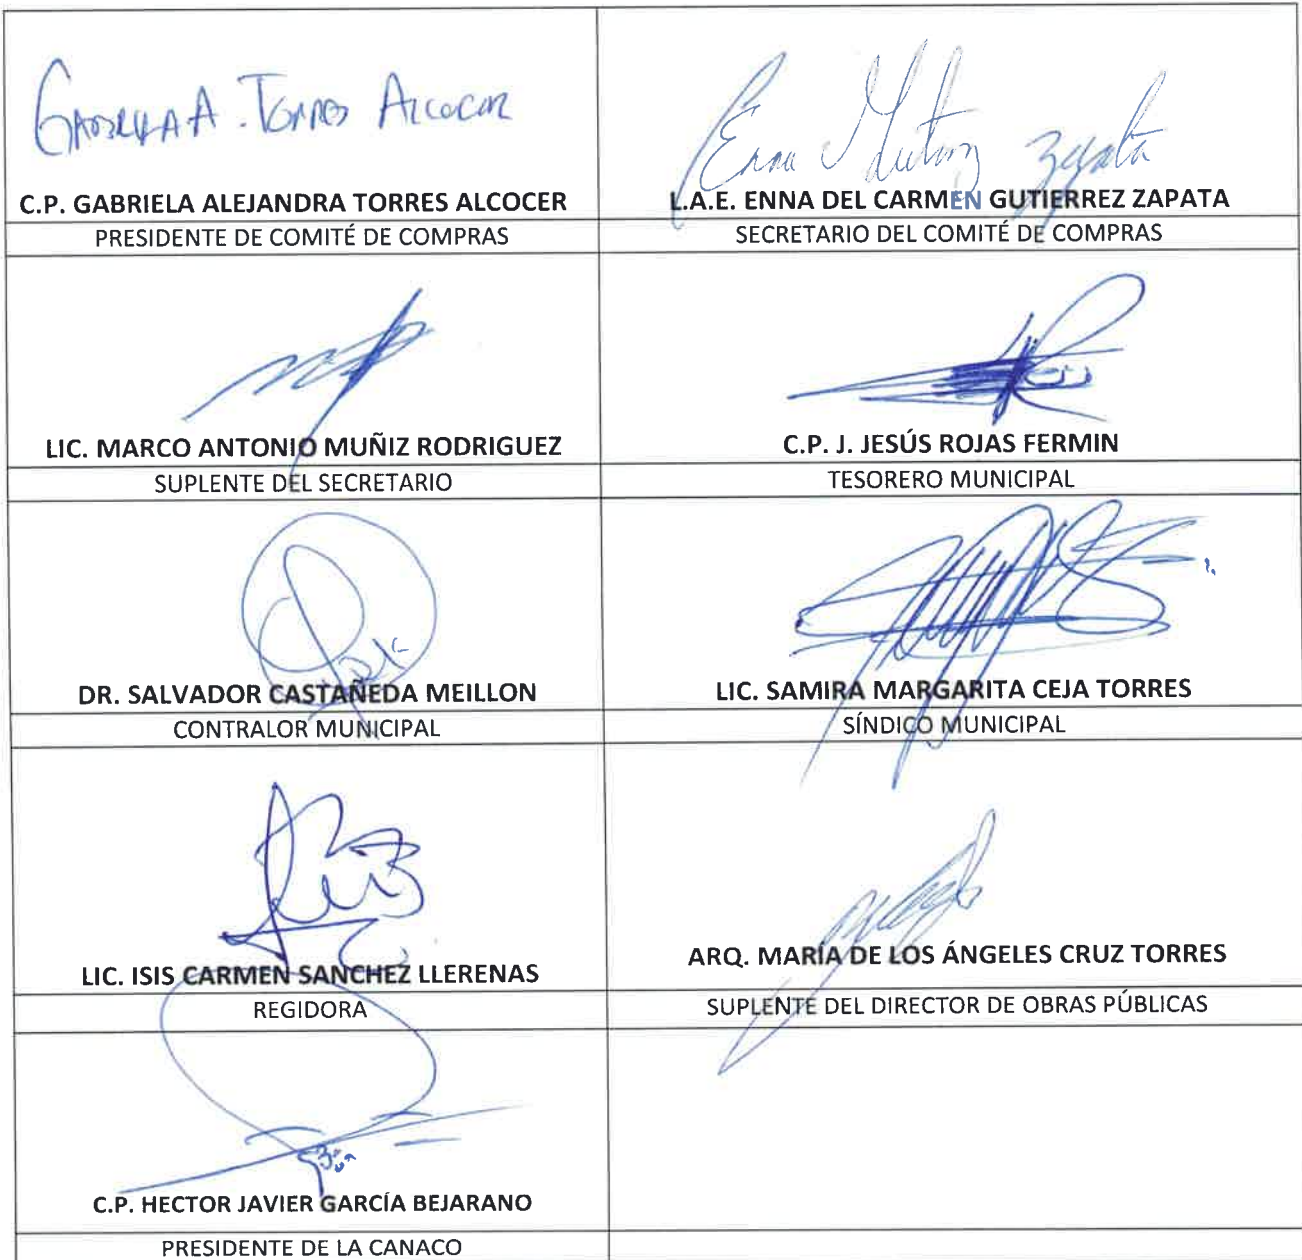 GABRIELA A. TORRES ALCOCER
Enna Gutierrez Zapata
C.P. GABRIELA ALEJANDRA TORRES ALCOCER
L.A.E. ENNA DEL CARMEN GUTIERREZ ZAPATA
PRESIDENTE DE COMITÉ DE COMPRAS
SECRETARIO DEL COMITÉ DE COMPRAS
LIC. MARCO ANTONIO MUÑIZ RODRIGUEZ
C.P. J. JESÚS ROJAS FERMIN
SUPLENTE DEL SECRETARIO
TESORERO MUNICIPAL
DR. SALVADOR CASTAÑEDA MEILLON
LIC. SAMIRA MARGARITA CEJA TORRES
CONTRALOR MUNICIPAL
SÍNDICO MUNICIPAL
LIC. ISIS CARMEN SANCHEZ LLERENAS
ARQ. MARÍA DE LOS ÁNGELES CRUZ TORRES
REGIDORA
SUPLENTE DEL DIRECTOR DE OBRAS PÚBLICAS
C.P. HECTOR JAVIER GARCÍA BEJARANO
PRESIDENTE DE LA CANACO